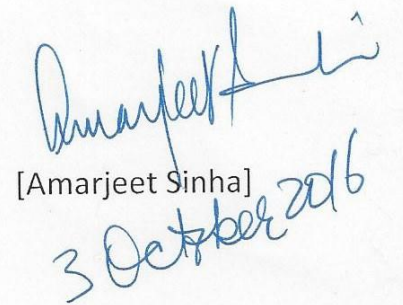 Amarjeet Sinha
[Amarjeet Sinha]
3 October 2016